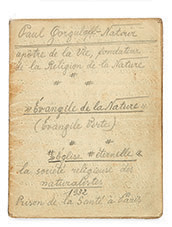 Paul Gorguloff-Nature
apôtre de la Vie, fondateur
de la Religion de la Nature
* * *
"Evangile de la Nature"
(Evangile Verte)
* * *
"Eglise Eternelle"
la société religieuse des
naturalistes
1932
Prison de la Santé à Paris